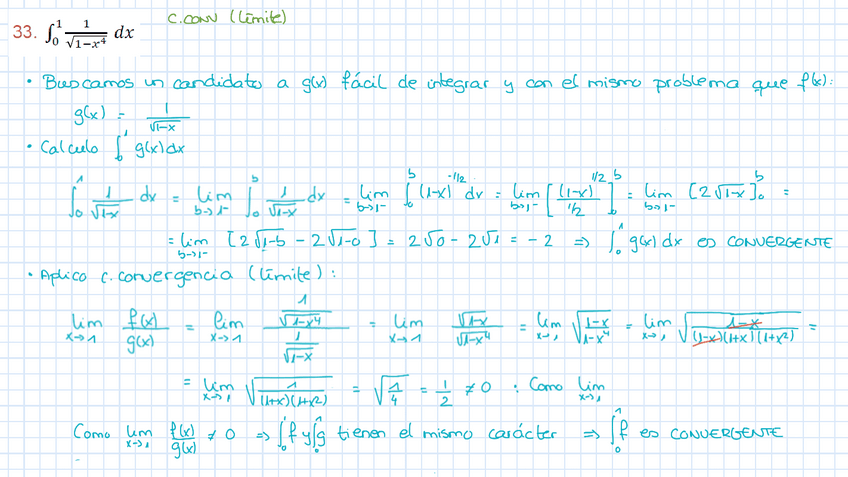 C. CONV (Límite)
33. ∫₀¹ 1/√(1−x⁴) dx
• Buscamos un candidato a g(x) fácil de integrar y con el mismo problema que f(x):
g(x) = 1/√(1−x)
• Calculo ∫₀¹ g(x)dx
∫₀¹ 1/√(1−x) dx = lim b→1⁻ ∫₀ᵇ 1/√(1−x) dx = lim b→1⁻ ∫₀ᵇ (1−x)^(-1/2) dx = lim b→1⁻ [(1−x)^(1/2) / 1/2]₀ᵇ = lim b→1⁻ [2√(1−x)]₀ᵇ =
= lim b→1⁻ [2√(1−b) − 2√(1−0)] = 2√0 − 2√1 = −2 ⇒ ∫₀¹ g(x)dx es CONVERGENTE
• Aplico c. convergencia (límite):
lim x→1 f(x)/g(x) = lim x→1 (1/√(1−x⁴))/(1/√(1−x)) = lim x→1 √(1−x)/√(1−x⁴) = lim x→1 √((1−x)/(1−x⁴)) = lim x→1 √((1−x)/((1−x)(1+x)(1+x²))) =
= lim x→1 √(1/((1+x)(1+x²))) = √(1/4) = 1/2 ≠ 0 : Como lim x→1
Como lim x→1 f(x)/g(x) ≠ 0 ⇒ ∫₀¹ f y ∫₀¹ g tienen el mismo carácter ⇒ ∫₀¹ f es CONVERGENTE